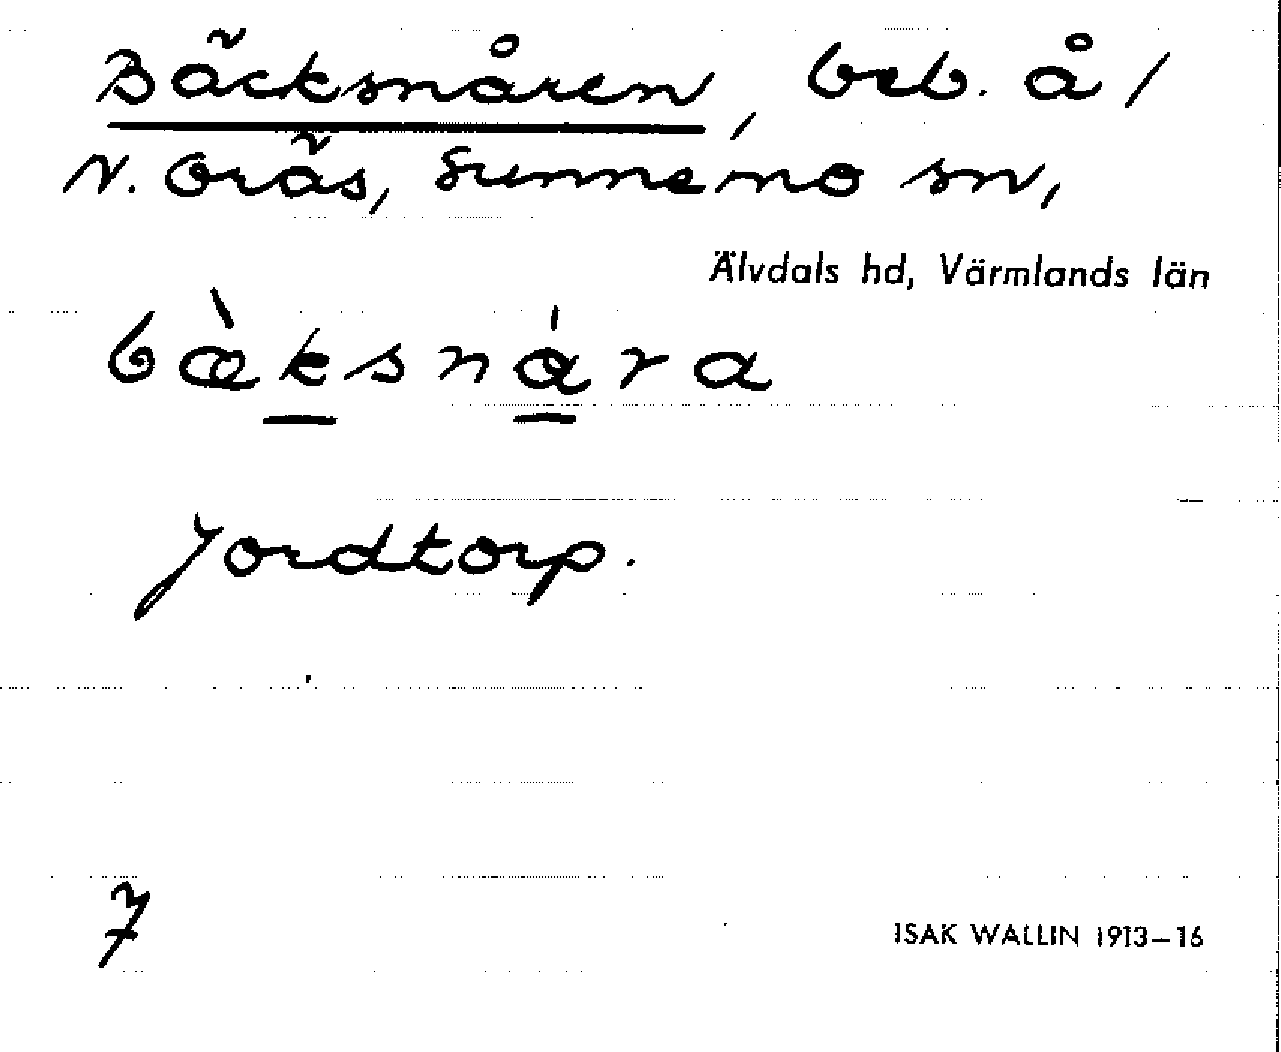 Bäcksnåren, beb. å/
N. Oräs, Sunnemo sn,
Älvdals hd, Värmlands län
bæ̀ksnára
Jordtorp.
7
ISAK WALLIN 1913–16